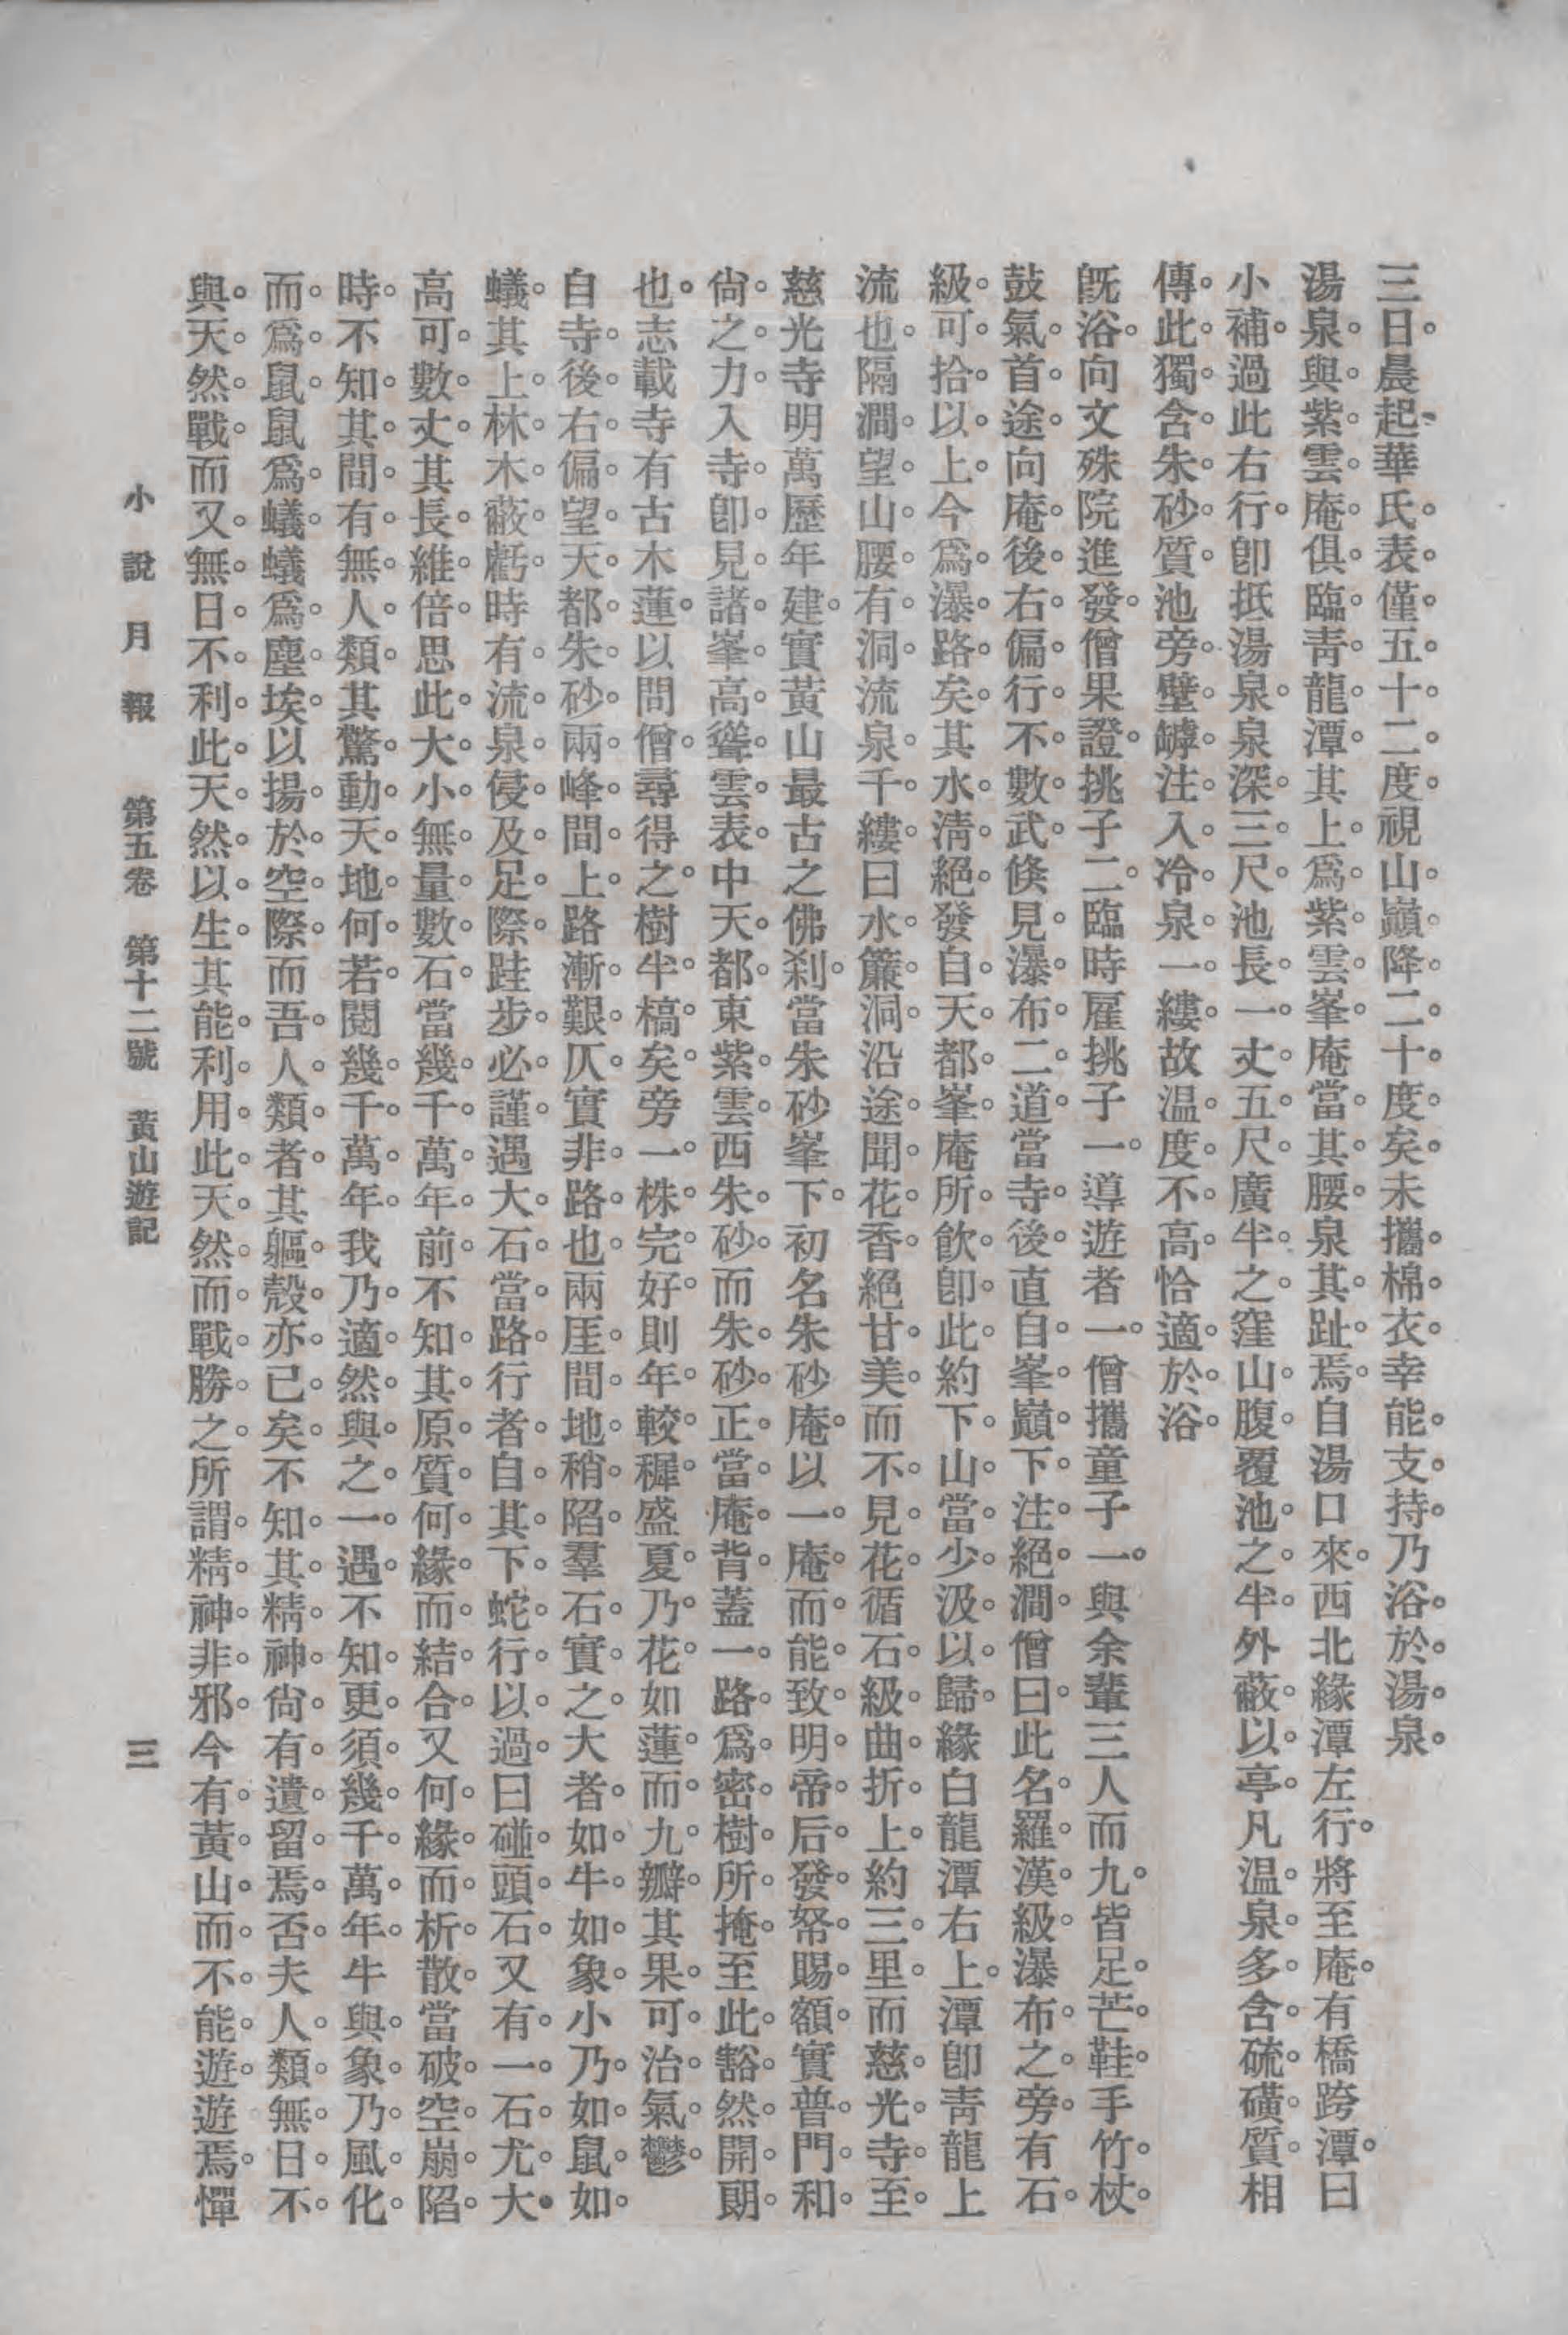 三日。晨起華氏。表。僅。五。十。二。度。視山。巓。降。二。十。度。矣。未攜。棉。衣。幸能。支。持。乃浴。於。湯。泉。
湯泉。與。紫。雲。庵。俱。臨。靑。龍。潭。其上。爲。紫。雲。峯。庵當。其。腰。泉其。趾。焉。自湯口來。西北緣潭左行。將至庵。有橋跨潭。曰
小補。過此右行。卽抵湯泉。泉深。三。尺。池長。一。丈。五。尺。廣半。之。窪山。腹。覆池。之。半。外蔽。以。亭。凡温。泉。多。含。硫。磺。質。相
傳。此。獨。含。朱。砂。質。池旁。壁。罅。注。入。冷。泉。一。縷。故温。度。不。高。恰適。於。浴。
旣浴。向文殊院進發。僧果證。挑子二。臨時雇挑子一。導遊者一。僧攜童子一。與余輩三人而九。皆足。芒。鞋。手竹。杖。
鼓氣。首。途。向庵。後。右。偏。行。不數。武。倏見。瀑。布。二。道。當寺。後。直自。峯。巓。下。注。絕。澗。僧曰。此名。羅漢。級。瀑布。之。旁。有石。
級。可。拾。以。上。今爲。瀑。路。矣。其水。淸。絕。發自。天。都。峯。庵所。飮。卽。此。約下。山。當。少。汲。以。歸。緣白龍潭右上。潭卽靑龍上
流也。隔澗。望。山。腰。有。洞。流泉。千。縷。曰水。簾。洞。沿途。聞。花。香。絕甘。美。而不。見。花。循石。級。曲。折。上。約三。里。而慈。光。寺。至。
慈光寺明萬歷年建。實黃山最古之佛刹。當朱砂峯下。初名朱砂庵。以一。庵。而。能。致。明。帝。后。發。帑。賜。額。實普。門。和。
尙。之。力。入寺。卽。見。諸。峯。高。聳。雲。表。中天。都。東紫。雲。西朱。砂。而朱。砂。正。當。庵。背。蓋一。路。爲。密。樹。所。掩。至此。豁。然。開。朗。
也。志載寺有古木蓮。以問僧。尋得之。樹半。槁。矣。旁一。株。完。好。則年。較穉。盛夏。乃。花。如蓮。而。九。瓣。其果。可。治。氣。鬱。
自寺。後。右。偏。望。天。都。朱砂。兩。峰。間。上。路漸。艱。仄。實非。路。也。兩厓。間。地。稍。陷。羣石。實。之。大者。如。牛。如。象。小乃。如。鼠。如。
蟻。其上。林。木。蔽。虧。時有。流。泉。侵。及。足。際。跬步。必。謹。遇大。石。當。路。行者。自。其。下。蛇。行。以。過。曰碰。頭。石。又有。一。石。尤。大。
高可。數。丈。其長。維。倍。思此。大。小。無。量。數。石。當幾。千。萬。年。前。不知。其。原。質。何。緣。而。結。合。又何。緣。而。析。散。當破。空。崩。陷。
時。不知。其。間。有。無。人。類。其驚。動。天。地。何。若。閱幾。千。萬。年。我乃。適。然。與。之。一。遇。不知。更。須。幾。千。萬。年。牛與。象。乃。風。化。
而。爲。鼠。鼠爲。蟻。蟻爲。塵。埃。以揚。於。空。際。而吾。人。類。者。其軀。殼。亦。已。矣。不知。其。精。神。尙。有。遺。留。焉。否。夫人。類。無。日。不。
與。天。然。戰。而又。無。日。不。利。此。天。然。以。生。其能。利。用。此。天。然。而。戰。勝。之。所。謂。精。神。非。邪。今有。黃。山。而。不。能。遊。遊焉。憚
小說月報 第五卷 第十二號 黃山遊記 三